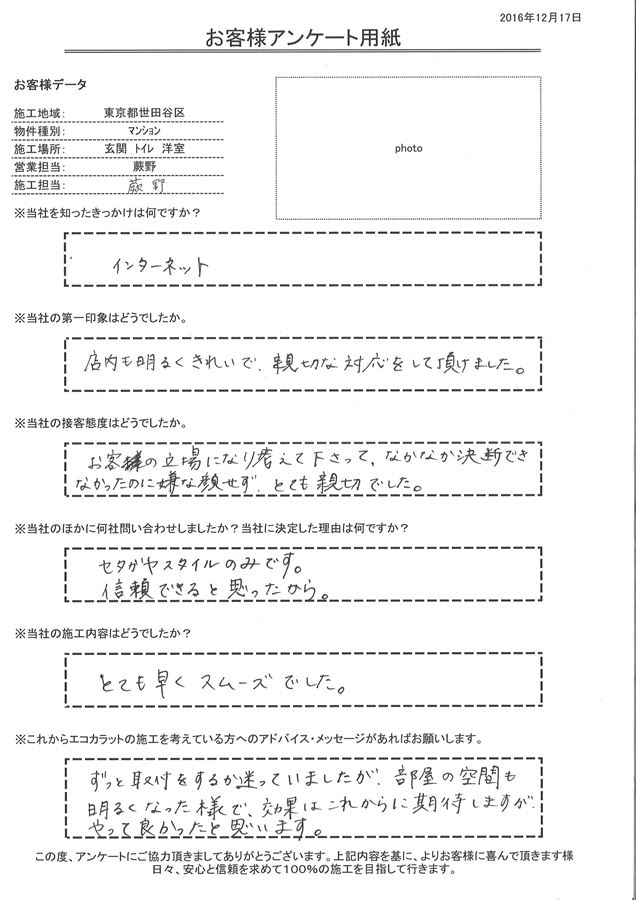 2016年12月17日
お客様アンケート用紙
お客様データ
施工地域: 東京都世田谷区
物件種別: マンション
施工場所: 玄関 トイレ 洋室
営業担当: 蕨野
施工担当: 蕨野
photo
※当社を知ったきっかけは何ですか?
インターネット
※当社の第一印象はどうでしたか。
店内も明るくきれいで、親切な対応をして頂けました。
※当社の接客態度はどうでしたか。
お客様の立場になり考えて下さって、なかなか決断でき
なかったのに嫌な顔せず、とても親切でした。
※当社のほかに何社問い合わせしましたか?当社に決定した理由は何ですか?
セタガヤスタイルのみです。
信頼できると思ったから。
※当社の施工内容はどうでしたか?
とても早くスムーズでした。
※これからエコカラットの施工を考えている方へのアドバイス・メッセージがあればお願いします。
ずっと取付をするか迷っていましたが、部屋の空間も
明るくなった様で、効果はこれからに期待しますが、
やって良かったと思います。
この度、アンケートにご協力頂きましてありがとうございます。上記内容を基に、よりお客様に喜んで頂きます様
日々、安心と信頼を求めて100%の施工を目指して行きます。